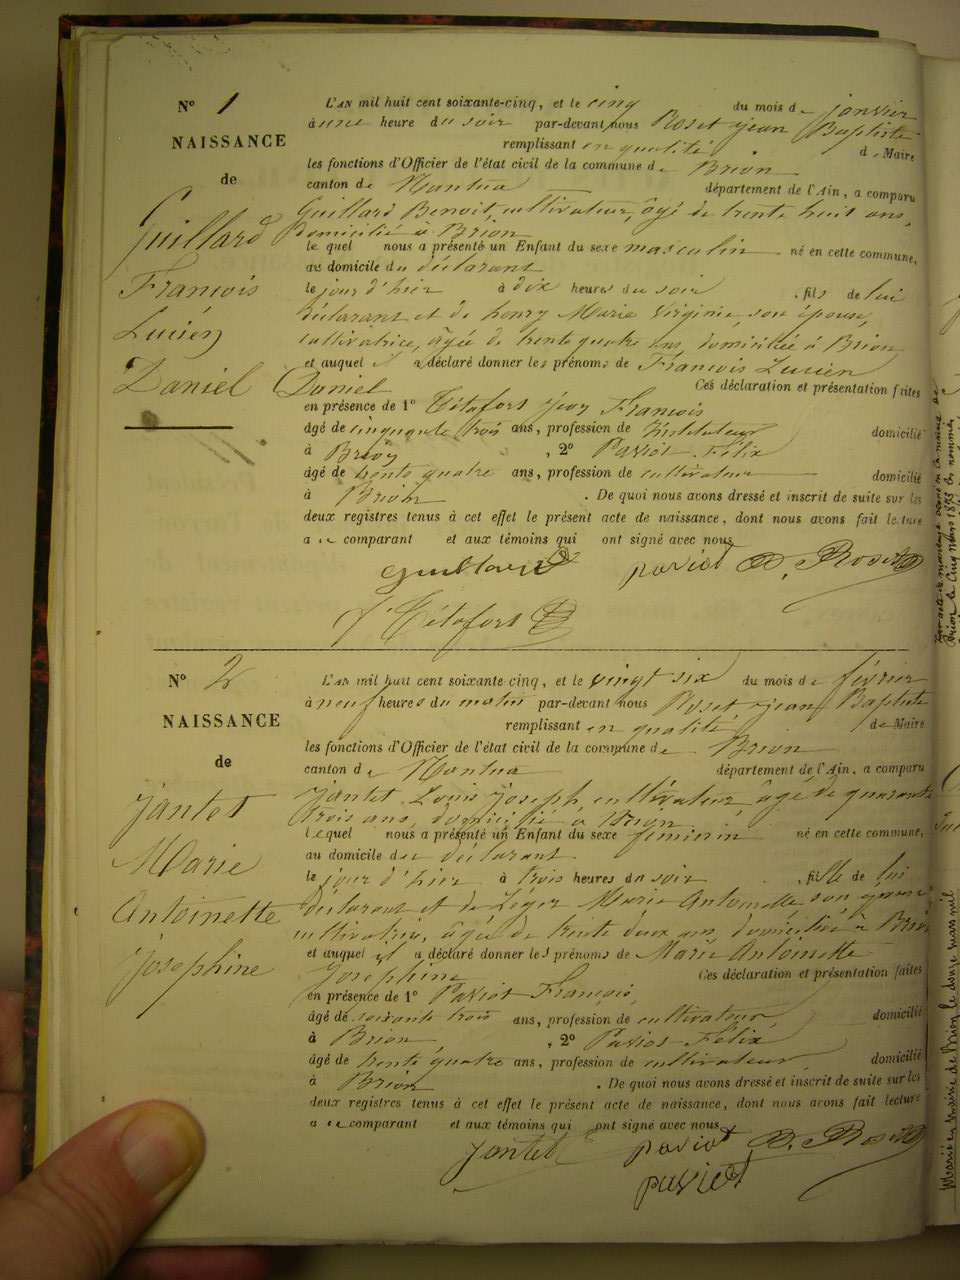 N° 1
NAISSANCE
de
Guillard
François
Lucien
Daniel
L'AN mil huit cent soixante-cinq, et le cinq du mois de janvier
à une heure du soir par-devant nous Roset jean Baptiste
remplissant en qualité de Maire
les fonctions d'Officier de l'état civil de la commune de Brion
canton de Nantua département de l'Ain, a comparu
Guillard Benoit, cultivateur, âgé de trente huit ans,
Domicilié à Brion
le quel nous a présenté un Enfant du sexe masculin né en cette commune,
au domicile du déclarant
le jour d'hier à dix heures du soir, fils de lui
déclarant et de henry Marie Virginie, son épouse,
cultivatrice, âgée de trente quatre ans, domiciliée à Brion
et auquel il a déclaré donner les prénoms de François Lucien
Daniel Ces déclaration et présentation faites
en présence de 1° Tétafort jean François
âgé de cinquante trois ans, profession de Instituteur domicilié
à Brion, 2° Paviot Félix
âgé de trente quatre ans, profession de cultivateur domicilié
à Brion. De quoi nous avons dressé et inscrit de suite sur les
deux registres tenus à cet effet le présent acte de naissance, dont nous avons fait lecture
a ce comparant et aux témoins qui ont signé avec nous
Guillard paviot B. Roset
J Tétafort
N° 2
NAISSANCE
de
Jantet
Marie
Antoinette
Josephine
L'AN mil huit cent soixante-cinq, et le vingt six du mois de février
à neuf heures du matin par-devant nous Roset jean Baptiste
remplissant en qualité de Maire
les fonctions d'Officier de l'état civil de la commune de Brion
canton de Nantua département de l'Ain, a comparu
Jantet Louis Joseph, cultivateur, âgé de quarante
trois ans, domicilié à Brion
lequel nous a présenté un Enfant du sexe féminin né en cette commune,
au domicile du déclarant
le jour d'hier à trois heures du soir, fille de lui
déclarant et de Léger Marie Antoinette son épouse,
cultivatrice, âgée de trente deux ans domiciliée à Brion
et auquel il a déclaré donner les prénoms de Marie Antoinette
Josephine Ces déclaration et présentation faites
en présence de 1° Paviot François,
âgé de soixante trois ans, profession de cultivateur, domicilié
à Brion, 2° Paviot Félix
âgé de trente quatre ans, profession de cultivateur, domicilié
à Brion. De quoi nous avons dressé et inscrit de suite sur les
deux registres tenus à cet effet le présent acte de naissance, dont nous avons fait lecture
a ce comparant et aux témoins qui ont signé avec nous
Jantet paviot B. Roset
paviot